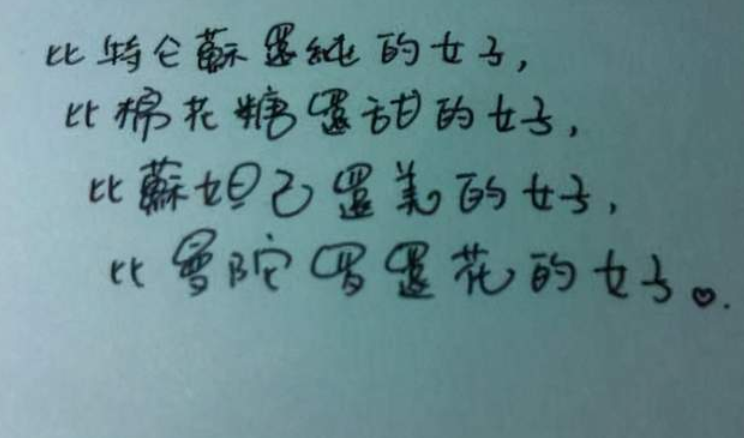 比特仑蘇還純的女子,
比棉花糖還甜的女子,
比蘇妲己還美的女子,
比曼陀罗還花的女子。